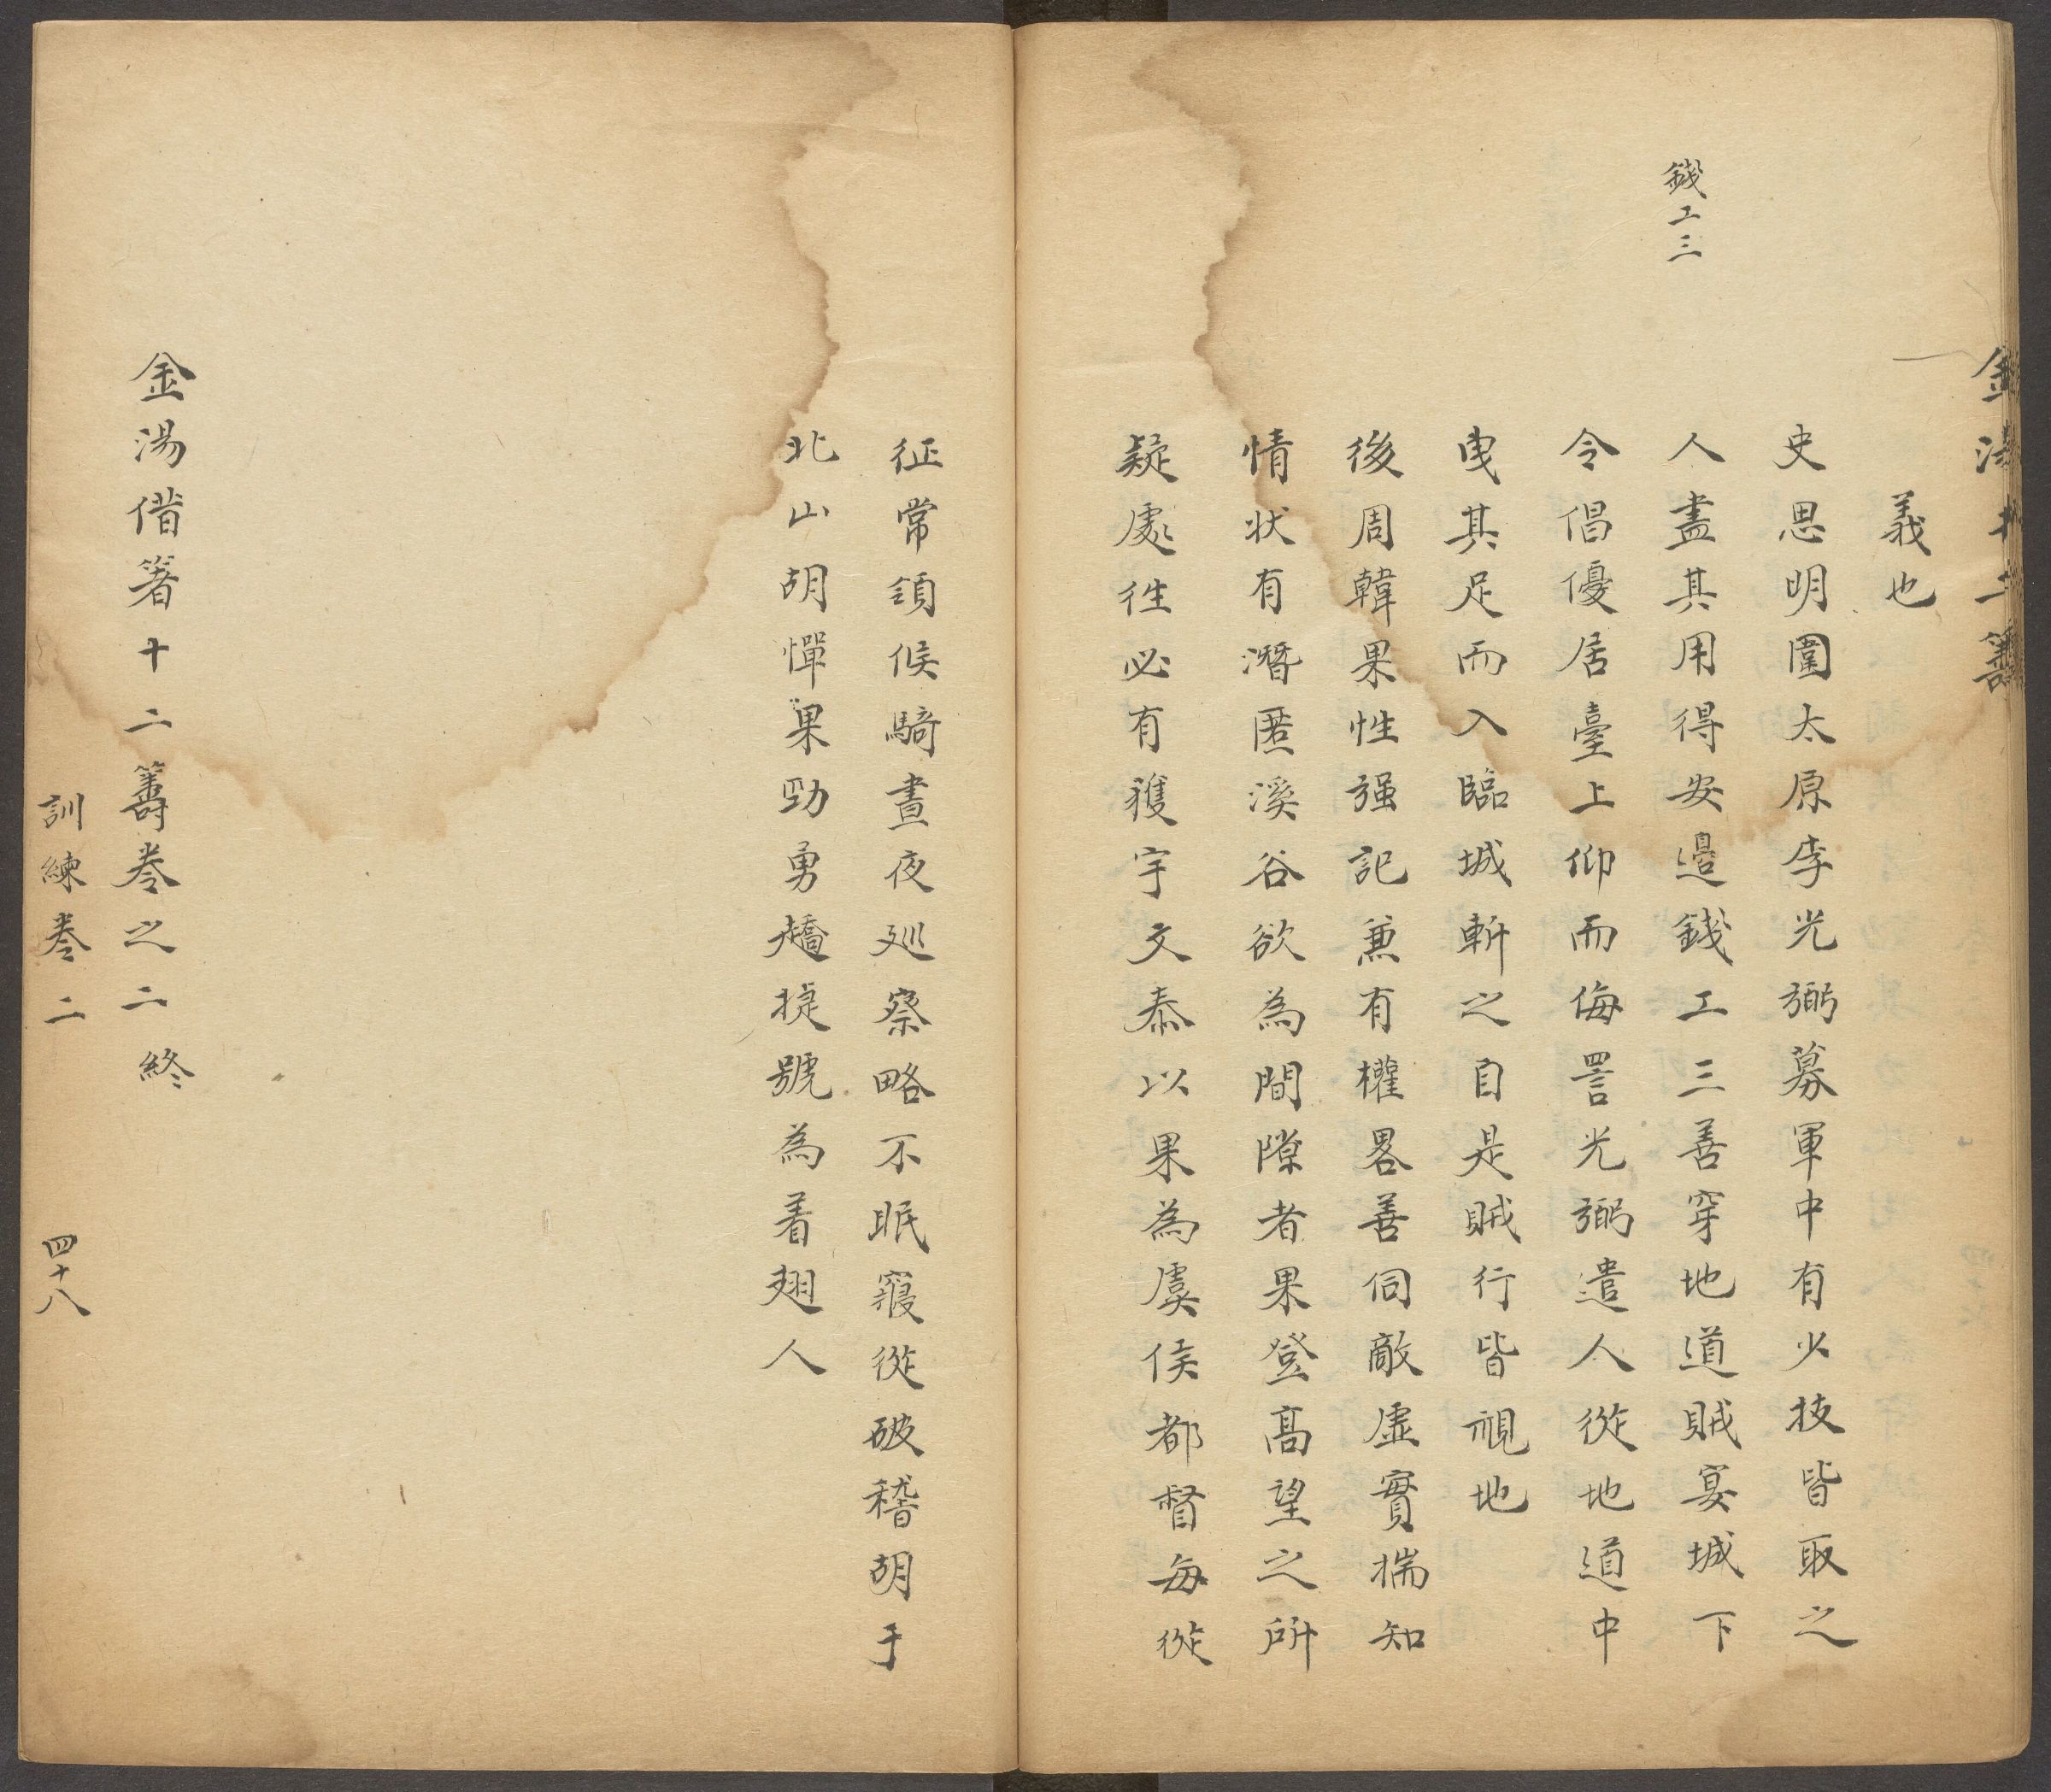 金湯十二籌
義也
錢工三
史思明圍太原李光弼募軍中有少技皆取之
人盡其用得安邉錢工三善穿地道賊宴城下
令倡優居臺上仰而侮詈光弼遣人從地道中
曳其足而入臨城斬之自是賊行皆視地
後周韓果性强記兼有權畧善伺敵虛實揣知
情状有潛匿溪谷欲為間隙者果登高望之所
疑處徃必有獲宇文泰以果為虞侯都督每從
征常領候騎晝夜廵察略不眠寢從破稽胡于
北山胡憚果勁勇趫捷號為着翅人
金湯借箸十二籌卷之二終
訓練卷二 四十八